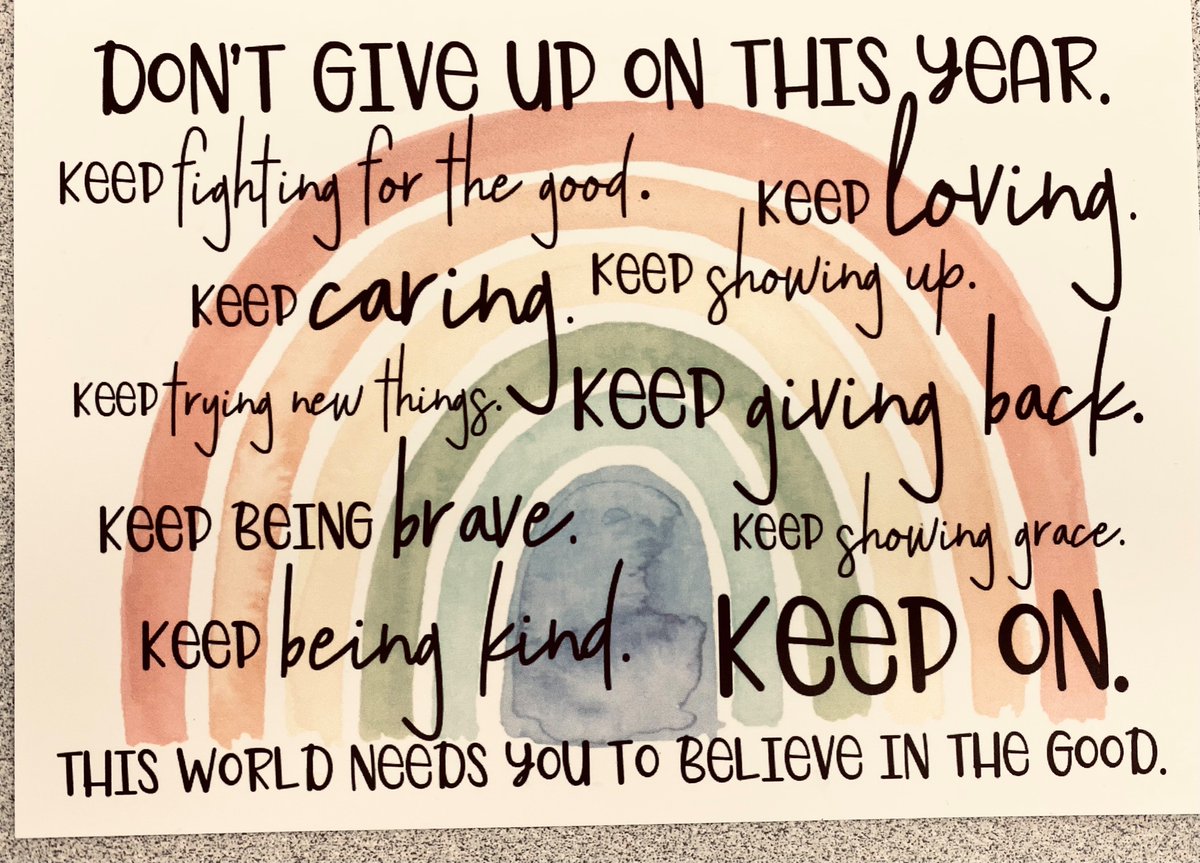 DON'T GIVE UP ON THIS YEAR.
KEEP fighting for the good.
KEEP loving.
KEEP caring.
KEEP showing up.
KEEP trying new things.
KEEP giving back.
KEEP BEING brave.
KEEP showing grace.
KEEP being kind.
KEEP ON.
THIS WORLD NEEDS YOU TO BELIEVE IN THE GOOD.